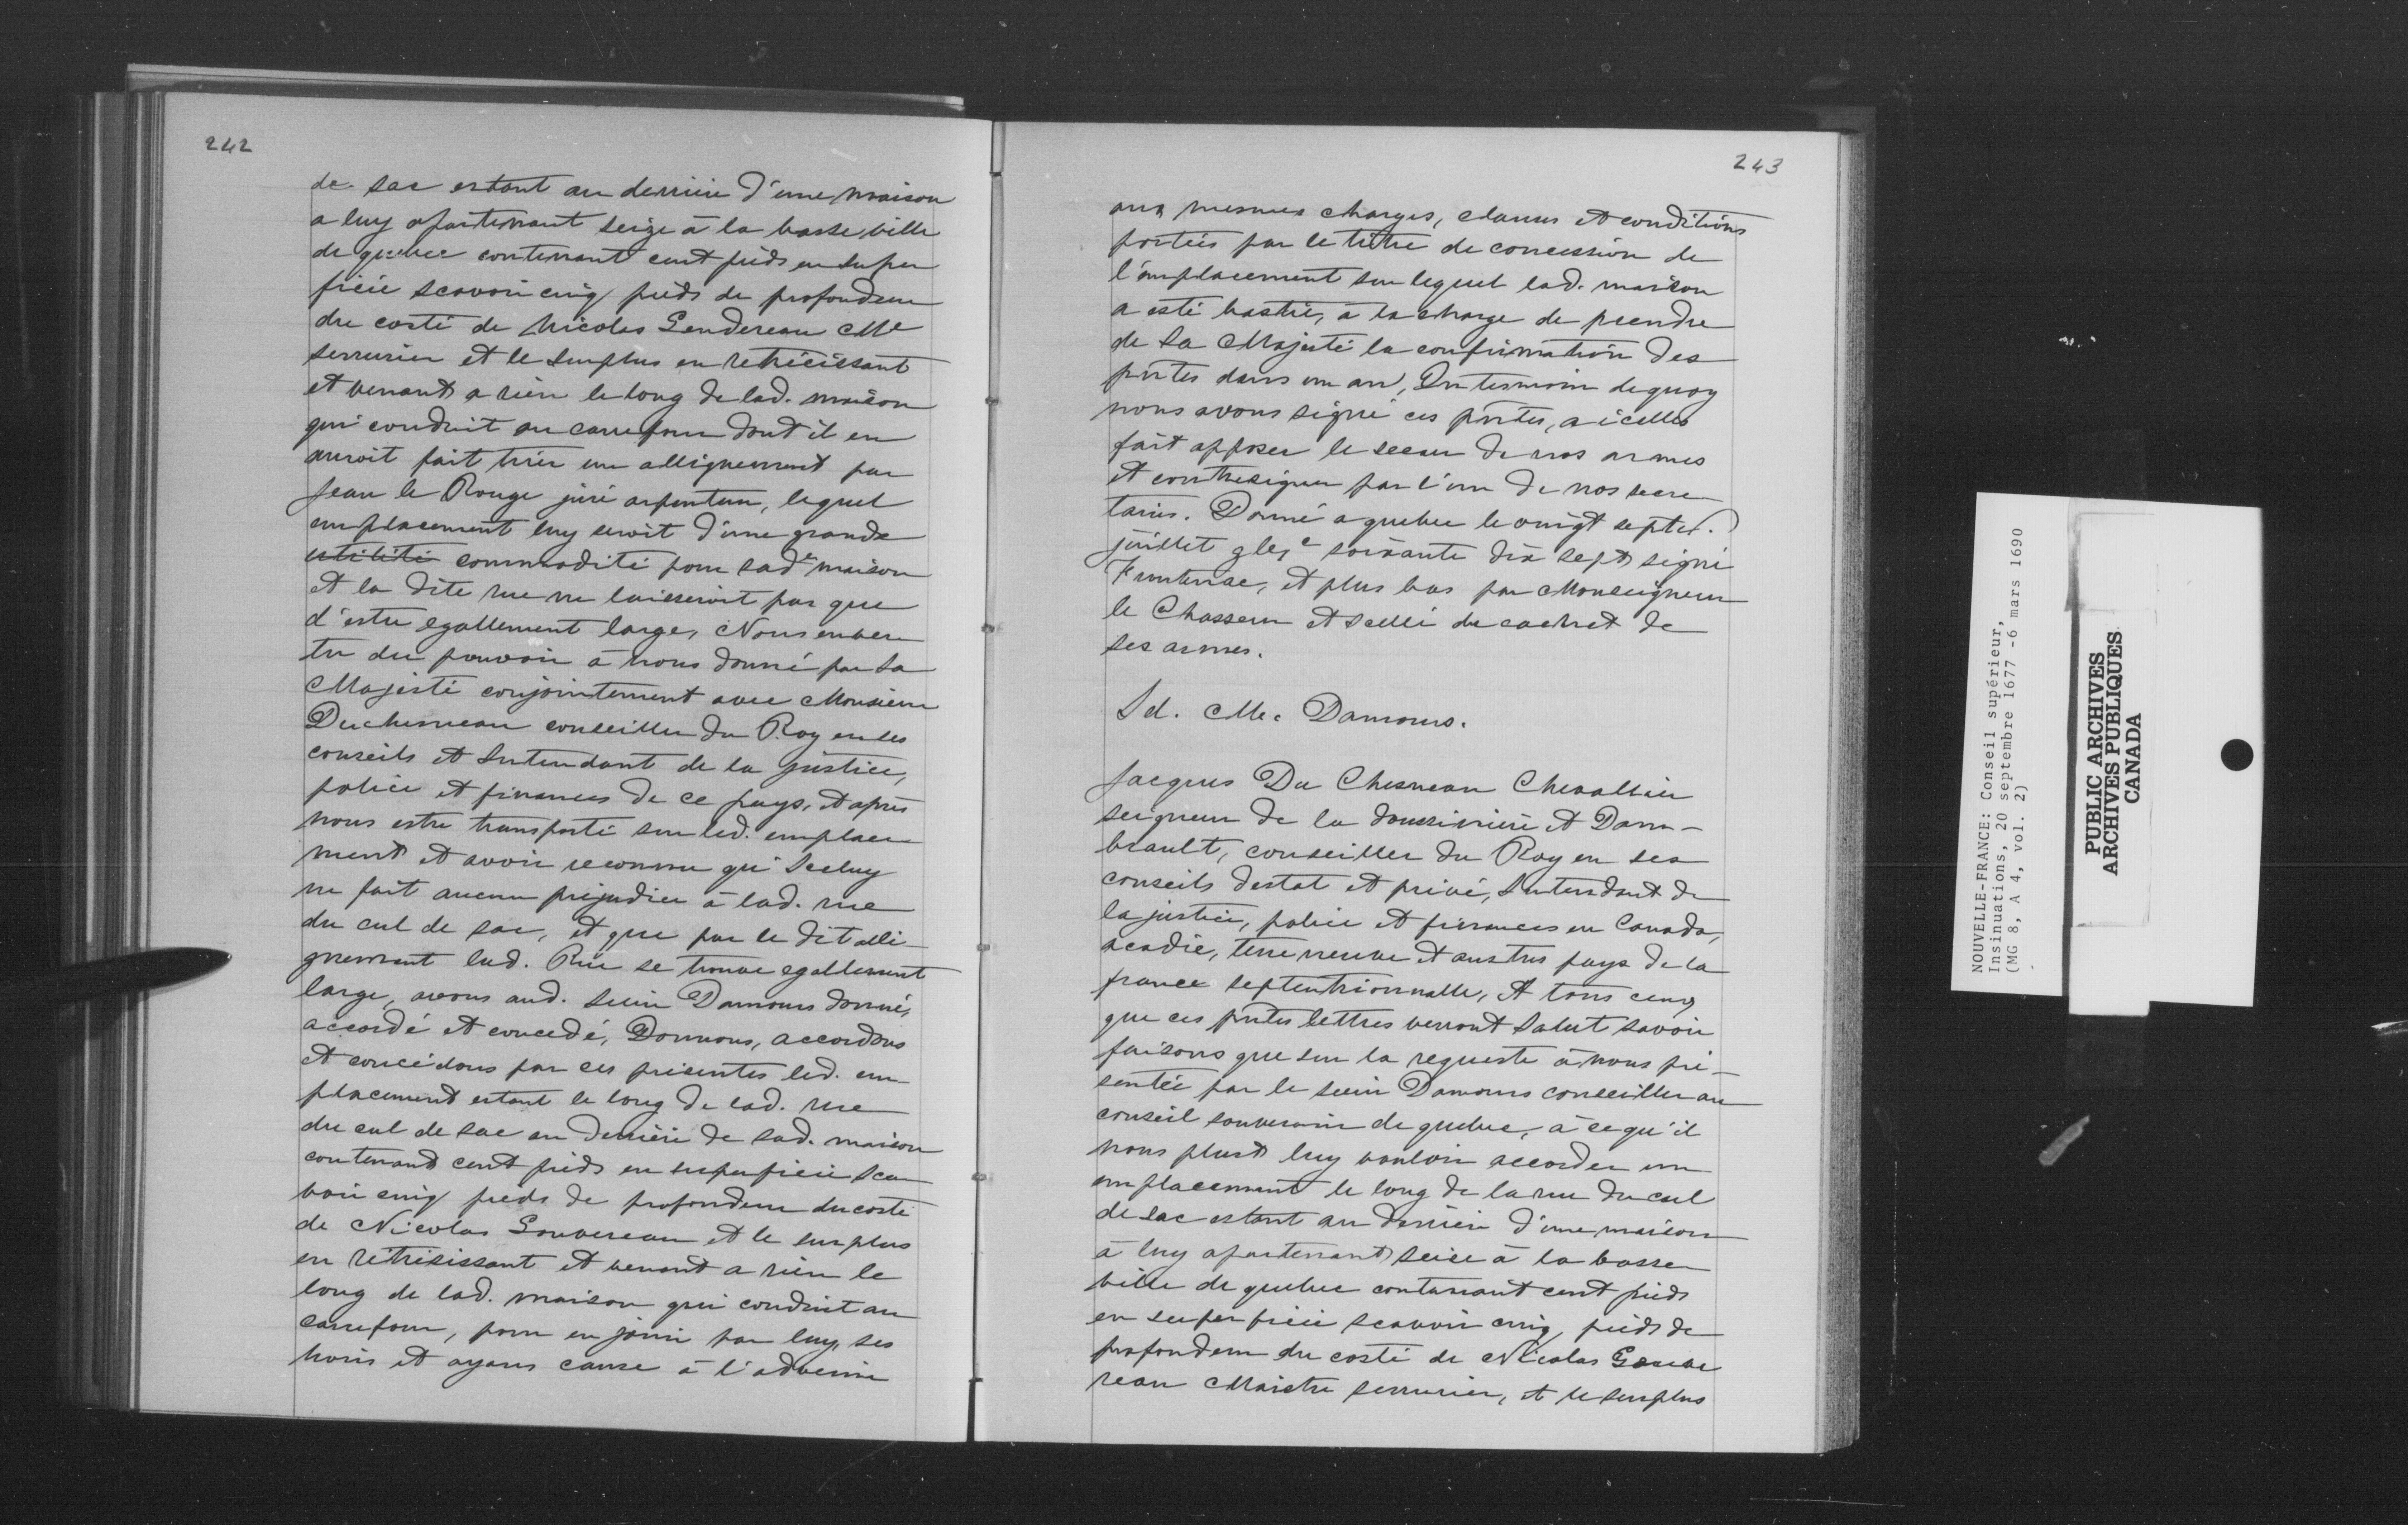 242
de sac estant au derriere d'une maison
a luy apartenant seize à la basse ville
de quebec contenant cent pieds en super
ficie scavoir cinq pieds de profondeur
du costé de Nicolas Gendereau Me
serrurier et le surplus en retrecissant
et venant a rien le long de lad. maison
qui conduit au carrefour dont il en
auroit fait tirer un allignement par
Jean le Rouge juré arpenteur, lequel
emplacement luy seroit d'une grande
utilité commodité pour sade maison
et la dite rue ne laisseroit pas que
d'estre egallement large, Nous en ver
tu du pouvoir à nous donné par Sa
Majesté conjointement avec Monsieur
Duchesneau conseiller du Roy en ses
conseils et Intendant de la justice,
police et finances de ce pays, et après
nous estre transporté sur led. emplace
ment et avoir reconnu qu'Iceluy
ne fait aucun préjudice à lad. rue
du cul de sac, et que par le dit alli-
gnement lad. Rue se trouve egallement
large, avons aud. sieur Damours donné,
accordé et concedé, Donnons, accordons
et concédons par ces présentes led. em-
placement estant le long de lad. rue
du cul de sac au derrière de sad. maison
contenant cent pieds en superficie sca
voir cinq pieds de profondeur du costé
de Nicolas Gouvereau et le surplus
en rétresissant et venant a rien le
long de lad. maison qui conduit au
carrefour, pour en jouir par luy, ses
hoirs et ayans cause à l'advenir
243
aux mesmes charges, clauses et conditions
portées par le titre de concession de
l'emplacement sur lequel lad. maison
a esté bastie, à la charge de prendre
de Sa Majesté la confirmation des
pntes dans un an, En tesmoin de quoy
nous avons signé ces pntes, a icelles
fait apposer le sceau de nos armes
et contresigner par l'un de nos secre
taires. Donné a quebec le vingt septe.
juillet gbjc soixante dix sept signé
Frontenac, et plus bas par Monseigneur
le Chasseur et scellé du cachet de
ses armes.
Sd. Me. Damours.
Jacques Du Chesneau Chevallier
seigneur de la doussinière et Dam-
brault, conseiller du Roy en ses
conseils destat et privé, Intendant de
la justice, police et finances en Canada,
acadie, terre neuve et austres pays de la
france septentrionnalle, A tous ceux
que ces pntes lettres verront Salut savoir
faisons que sur la requeste à nous pré-
sentée par le sieur Damours conseiller au
conseil souverain de quebec, à ce qu'il
nous plust luy vouloir accorder un
emplacement le long de la rue du cul
de sac estant au derrière d'une maison
à luy apartenant seise à la basse
ville de quebec contenant cent pieds
en superficie scavoir cinq pieds de
profondeur du costé de Nicolas Gouve
reau Maistre serrurier, et le surplus
NOUVELLE-FRANCE: Conseil supérieur,
Insinuations, 20 septembre 1677 -6 mars 1690
(MG 8, A 4, vol. 2)
PUBLIC ARCHIVES
ARCHIVES PUBLIQUES
CANADA